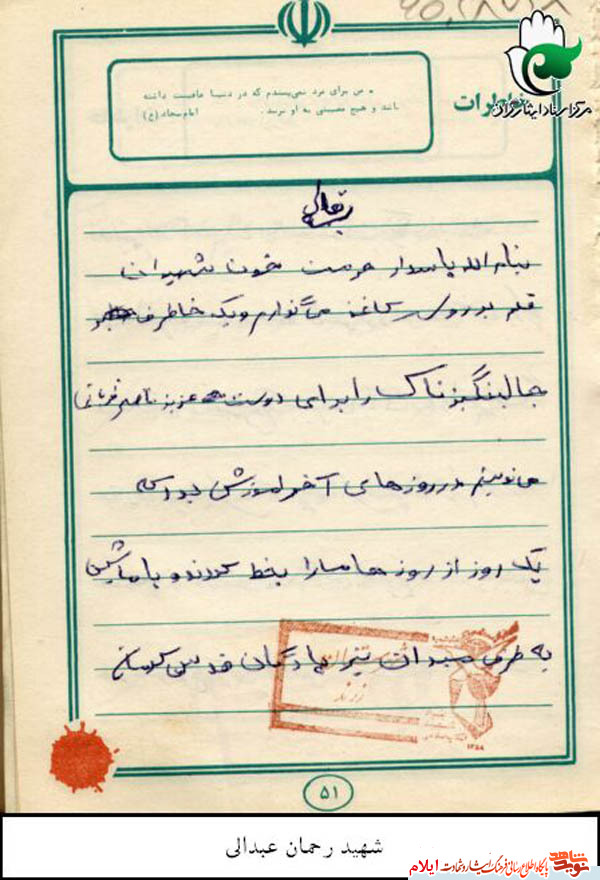 خاطرات
مرکز اسناد ایثارگران
• من برای مرد نمی‌پسندم که در دنیا عافیت داشته
باشد و هیچ مصیبتی به او نرسد. امام سجاد (ع)
بنام الله پاسدار حرمت خون شهیدان
قلم بر روی کاغذ می‌گذارم و یک خاطره
جالب را برای دوست عزیز ناصر
می نویسم در روزهای آخر آموزش بود که
یک روز از روزها ما را بخط کردند و با ماشین
به طرف میدان تیر پادگان قدس کرمان
زرند
۱۳۵۸
۵۱
شهید رحمان عبدالی
نوید شاهد پایگاه اطلاع رسانی فرهنگ ایثار و شهادت ایلام